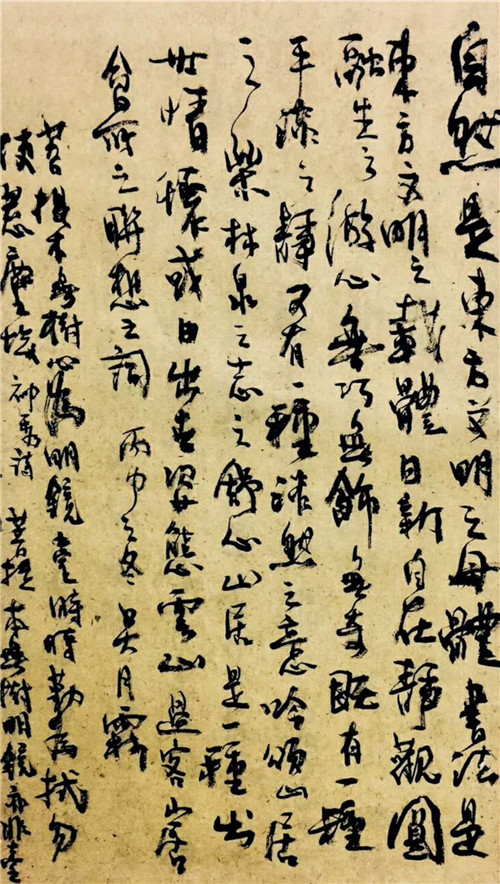 自然是東方文明之母體書法是
東方文明之載體日新自在靜觀圓
融生之游心無巧無飾無奇既有一種
平淡之靜又有一種淡然之意吟頌山居
之樂林泉之志之舒心山居是一種出
世情懷或日出有姿態雲山是客山居
會所之聯想之詞 丙申之冬 吳月霖
菩提本無樹心為明鏡臺時時勤為拭勿
使惹塵埃 神秀詩 菩提本無樹明鏡亦非臺